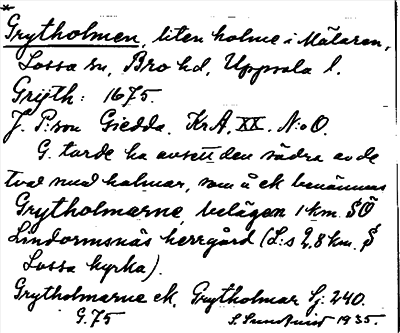 *
Grytholmen, liten holme i Mälaren,
Lossa sn, Bro hd, Uppsala l.
Grijth: 1675.
J. P:son Giedda. KrA, XX. N:o O.
G. torde ha avsett den södra av de
två små holmar, som å ek benämnas
Grytholmarne, belägen 1 km. SÖ
Lindormsnäs herrgård (L:s 2,8 km. S
Lossa kyrka).
Grytholmarne ek, Grytholmar Sj. 240.
G. 75 S. Sundquist 1935.